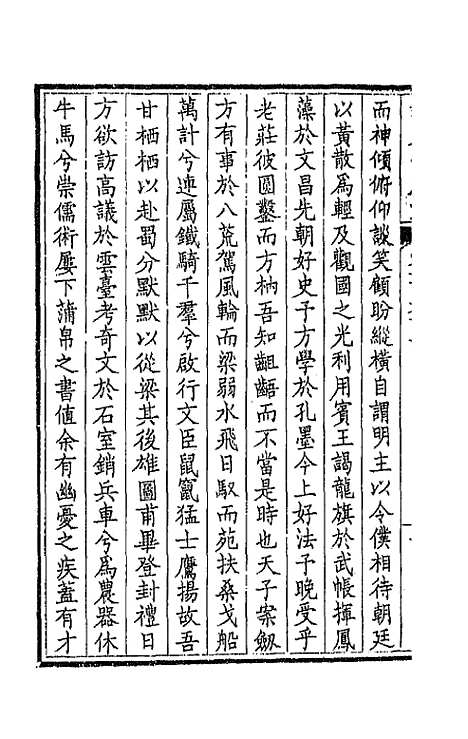 而神傾俯仰談笑顧盼縱橫自謂明主以令僕相待朝廷
以黃散爲輕及觀國之光利用賓王謁龍旗於武帳揮鳳
藻於文昌先朝好史子方學於孔墨今上好法子晚受乎
老莊彼圓鑿而方枘吾知齟齬而不當是時也天子案劔
方有事於八荒駕風輪而梁弱水飛日馭而苑扶桑戈船
萬計兮連屬鐵騎千羣兮啟行文臣鼠竄猛士鷹揚故吾
甘栖栖以赴蜀分默默以從梁其後雄圖甫畢登封禮日
方欲訪高議於雲臺考奇文於石室銷兵車兮爲農器休
牛馬兮崇儒術屢下蒲帛之書值余有幽憂之疾蓋有才